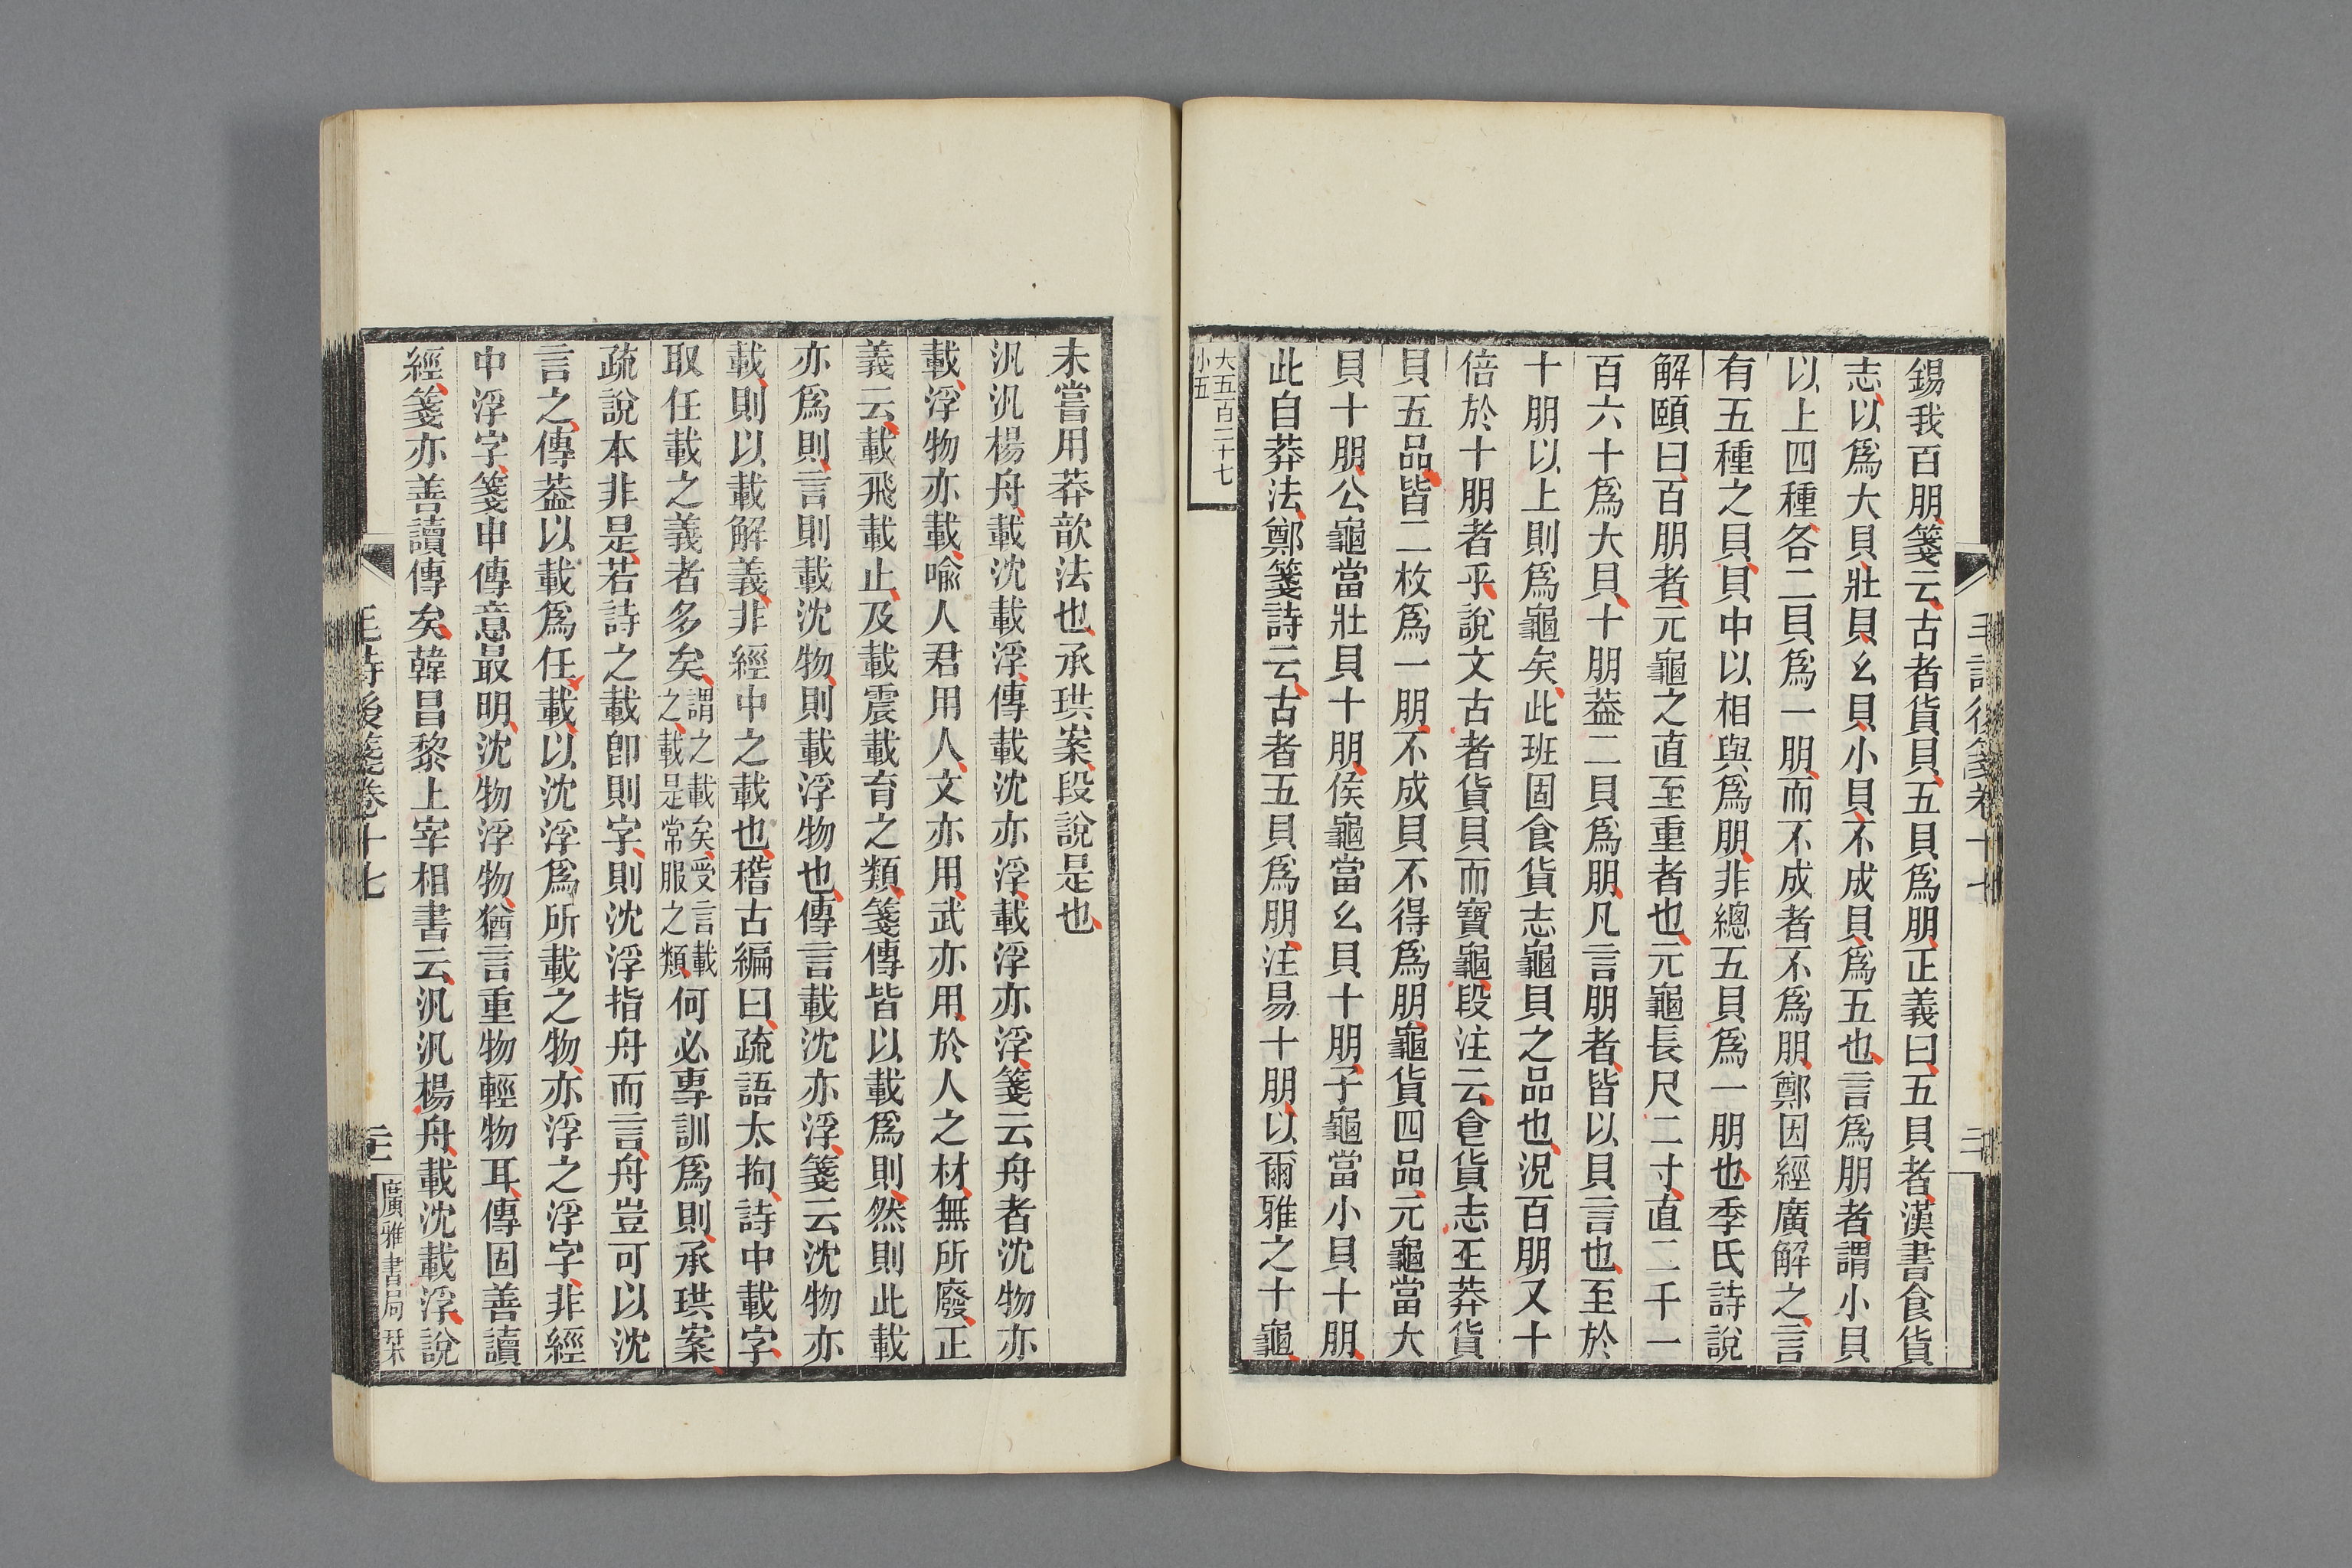 錫我百朋箋云古者貨貝五貝爲朋正義曰五貝者漢書食貨
志以爲大貝壯貝幺貝小貝不成貝爲五也言爲朋者謂小貝
以上四種各二貝爲一朋而不成者不爲朋鄭因經廣解之言
有五種之貝貝中以相與爲朋非總五貝爲一朋也季氏詩說
解頤曰百朋者元龜之直至重者也元龜長尺二寸直二千一
百六十爲大貝十朋葢二貝爲朋凡言朋者皆以貝言也至於
十朋以上則爲龜矣此班固食貨志龜貝之品也況百朋又十
倍於十朋者乎說文古者貨貝而寶龜段注云食貨志王莽貨
貝五品皆二枚爲一朋不成貝不得爲朋龜貨四品元龜當大
貝十朋公龜當壯貝十朋侯龜當幺貝十朋子龜當小貝十朋
此自莽法鄭箋詩云古者五貝爲朋注易十朋以爾雅之十龜
大五百二十七
小五
未嘗用莽歆法也承珙案段說是也
汎汎楊舟載沈載浮傳載沈亦浮載浮亦浮箋云舟者沈物亦
載浮物亦載喻人君用人文亦用武亦用於人之材無所廢正
義云載飛載止及載震載育之類箋傳皆以載爲則然則此載
亦爲則言則載沈物則載浮物也傳言載沈亦浮箋云沈物亦
載則以載解義非經中之載也稽古編曰疏語太拘詩中載字
取任載之義者多矣謂之載矣受言載之載是常服之類何必專訓爲則承珙案
疏說本非是若詩之載卽則字則沈浮指舟而言舟豈可以沈
言之傳葢以載爲任載以沈浮爲所載之物亦浮之浮字非經
中浮字箋申傳意最明沈物浮物猶言重物輕物耳傳固善讀
經箋亦善讀傳矣韓昌黎上宰相書云汎汎楊舟載沈載浮說
毛詩後箋卷十七
廣雅書局栞